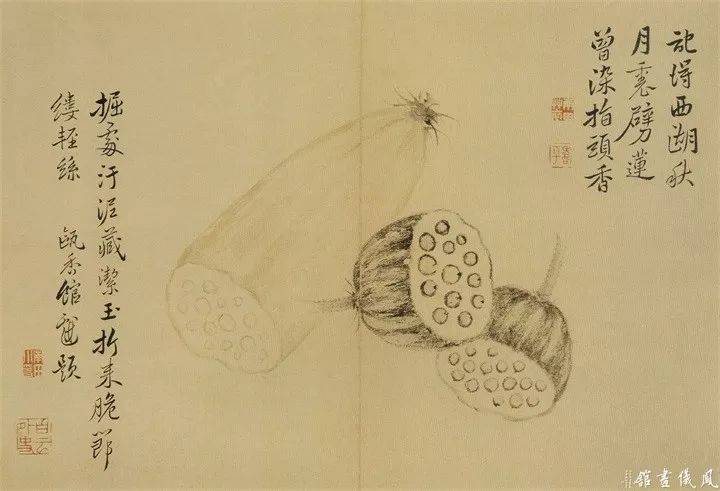 記得西湖秋
月裏劈蓮
曾染指頭香
掘處汙泥藏潔玉折來脆節
縷輕絲 甌香館戲題
白雲外史
鳳儀畫館